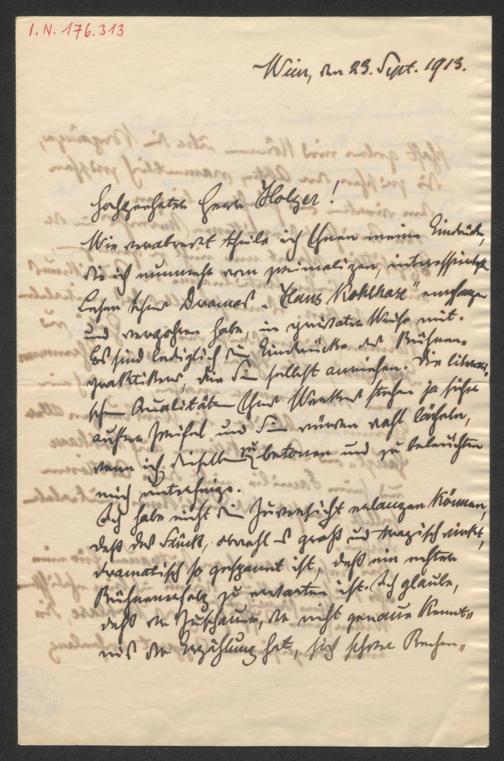 I. N. 176.313
Wien, den 23. Sept. 1913.
Hochgeehrter Herr Holzer!
Wie verabredet theile ich Ihnen meine Eindrücke,
die ich nunmehr vom zweimaligen, interessirten
Lesen Ihres Dramas „Hans Kohlhase" empfangen
und verzeichnet habe, in privater Weise mit.
Es sind lediglich die Eindrücke des Bühnen-
praktikers, die Sie selbst ansuchen. Die literari-
schen Qualitäten Ihres Werkes stehen ja sicher
außer Zweifel und Sie würden wohl lächeln,
wenn ich dieselben zu betonen und zu beleuchten
mich unterfinge.
Ich habe nicht die Zuversicht erlangen können,
daß das Stück, obwohl es groß und tragisch wirkt,
dramatisch so gespannt ist, daß ein echter
Bühnenerfolg zu erwarten ist. Ich glaube,
daß der Zuschauer, der nicht genaue Kennt-
nis der Erzählung hat, sich schwer Rechen-